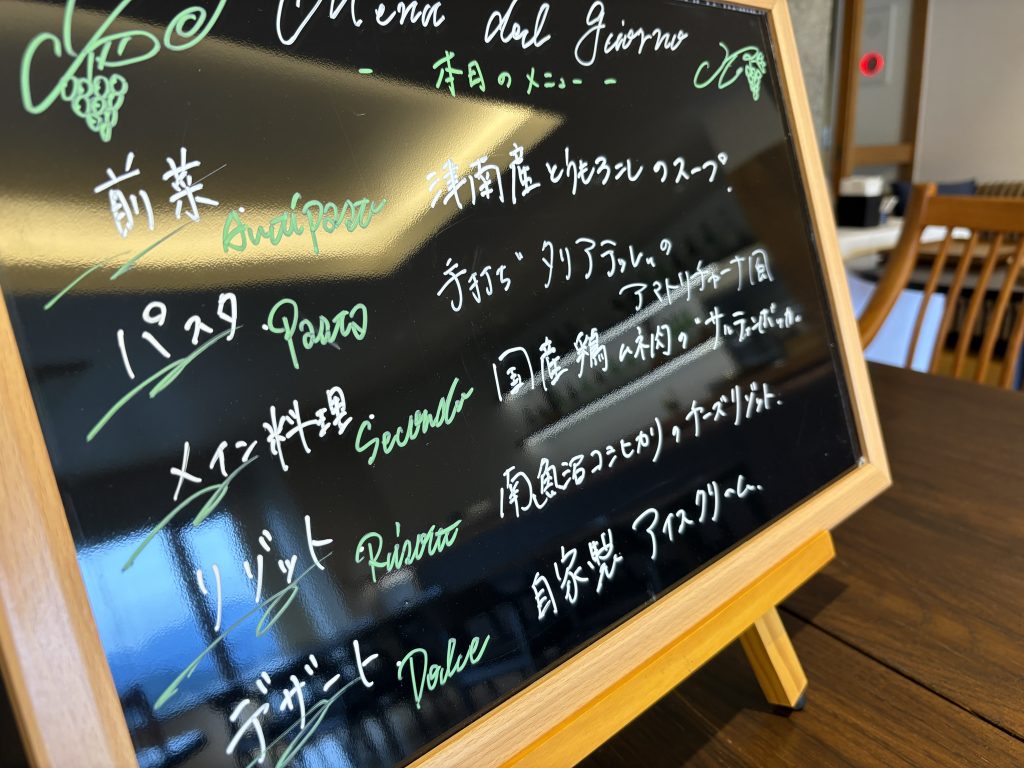 Menu del giorno
- 本日のメニュー -
前菜. Antipasto 津南産とうもろこしのスープ.
パスタ. Pasta 手打ち タリアテッレの
アマトリチャーナ風
メイン料理. Secondo 国産鶏ムネ肉の サルティンボッカ.
リゾット Risotto 南魚沼コシヒカリのチーズリゾット.
デザート. Dolce 自家製 アイスクリーム.